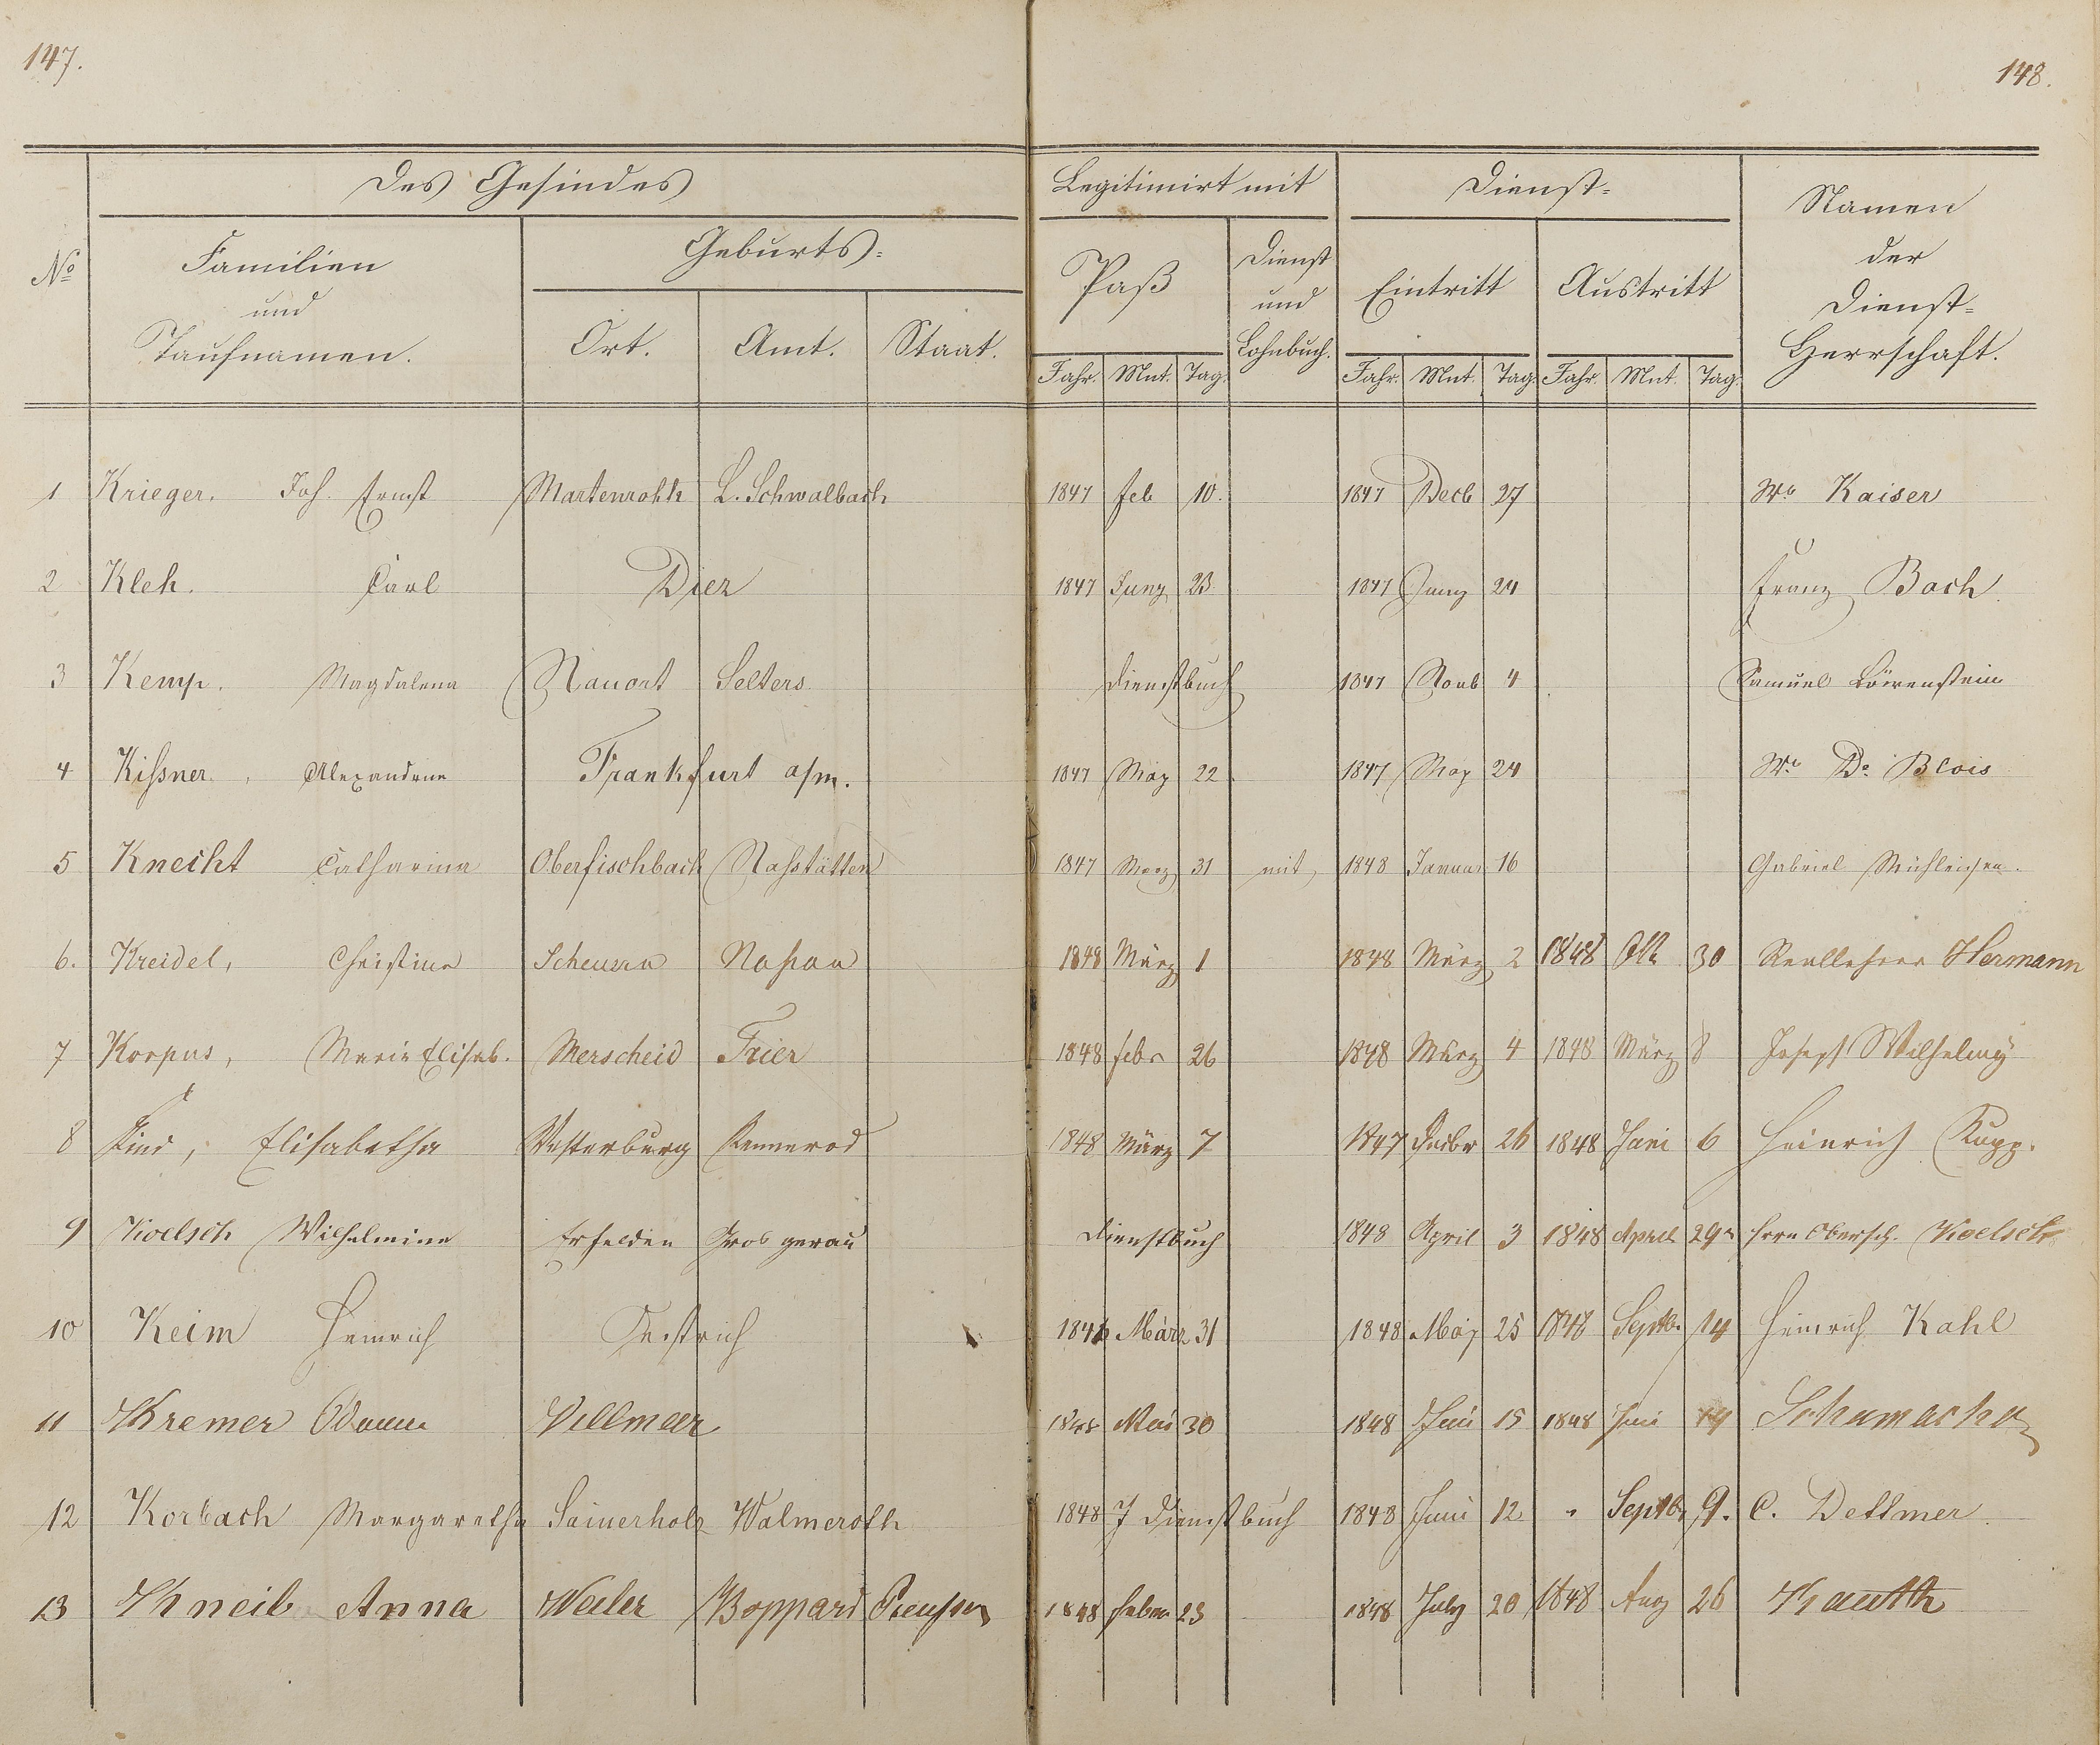 147.
148.
Des Gesindes
Legitimirt mit
Dienst-
Namen
der
Dienst-
Herrschaft.
No
Familien
und
Taufnamen.
Geburts-
Ort. Amt. Staat.
Paß
Dienst
und
Lohnbuch.
Eintritt
Austritt
Jahr. Mnt. Tag. Jahr. Mnt. Tag. Jahr. Mnt. Tag.
1 Krieger. Joh. Ernst Martenroth L. Schwalbach 1847 Feb 10. 1847 Decb 27 We Kaiser
2 Kleh. Carl Diez 1847 Juny 23 1847 Juny 24 Franz Bach
3 Kemp. Magdalena Nauort Selters Dienstbuch 1847 Novb 4 Samuel Löwenstein
4 Kißner, Alexandrine Frankfurt a/m. 1847 May 22 1847 May 24 We De Blois
5 Knecht Catharina Oberfischbach Naßtätten 1847 Merz 31 mit, 1848 Januar 16 Gabriel
6. Kreidel, Christine Scheuern Naßau 1848 März 1 1848 März 2 1848 Okt 30 Reallehrer Hermann
7 Korpus, Marie Elisab. Merscheid Trier 1848 Febr 26 1848 März 4 1848 März 8 Joseph Wilhelmy
8 Kind, Elisabetha Westerburg Rennerod 1848 März 7 1847 Decbr 26 1848 Juni 6 Heinrich Kupp.
9 Koelsch Wilhelmine Erfelden Groß gerau Dienstbuch 1848 April 3 1848 April 29 Herrn Obersch. Koelsch
10 Keim Heinrich Oestrich 1846 März 31 1848 May 25 1848 Septbr 14 Heinrich Kahl
11 Kremer Villmar 1848 Mai 30 1848 Juni 15 1848 Juni 14 Schumacher
12 Korbach Margaretha Sainerholz Walmeroth 1848 J Dienstbuch 1848 Juni 12 " Septbr 9. C. Dettmer
13 Kneib Anna Weiler Boppard Preußen 1848 Febr 23 1848 July 20 1848 Aug 26 Kauth